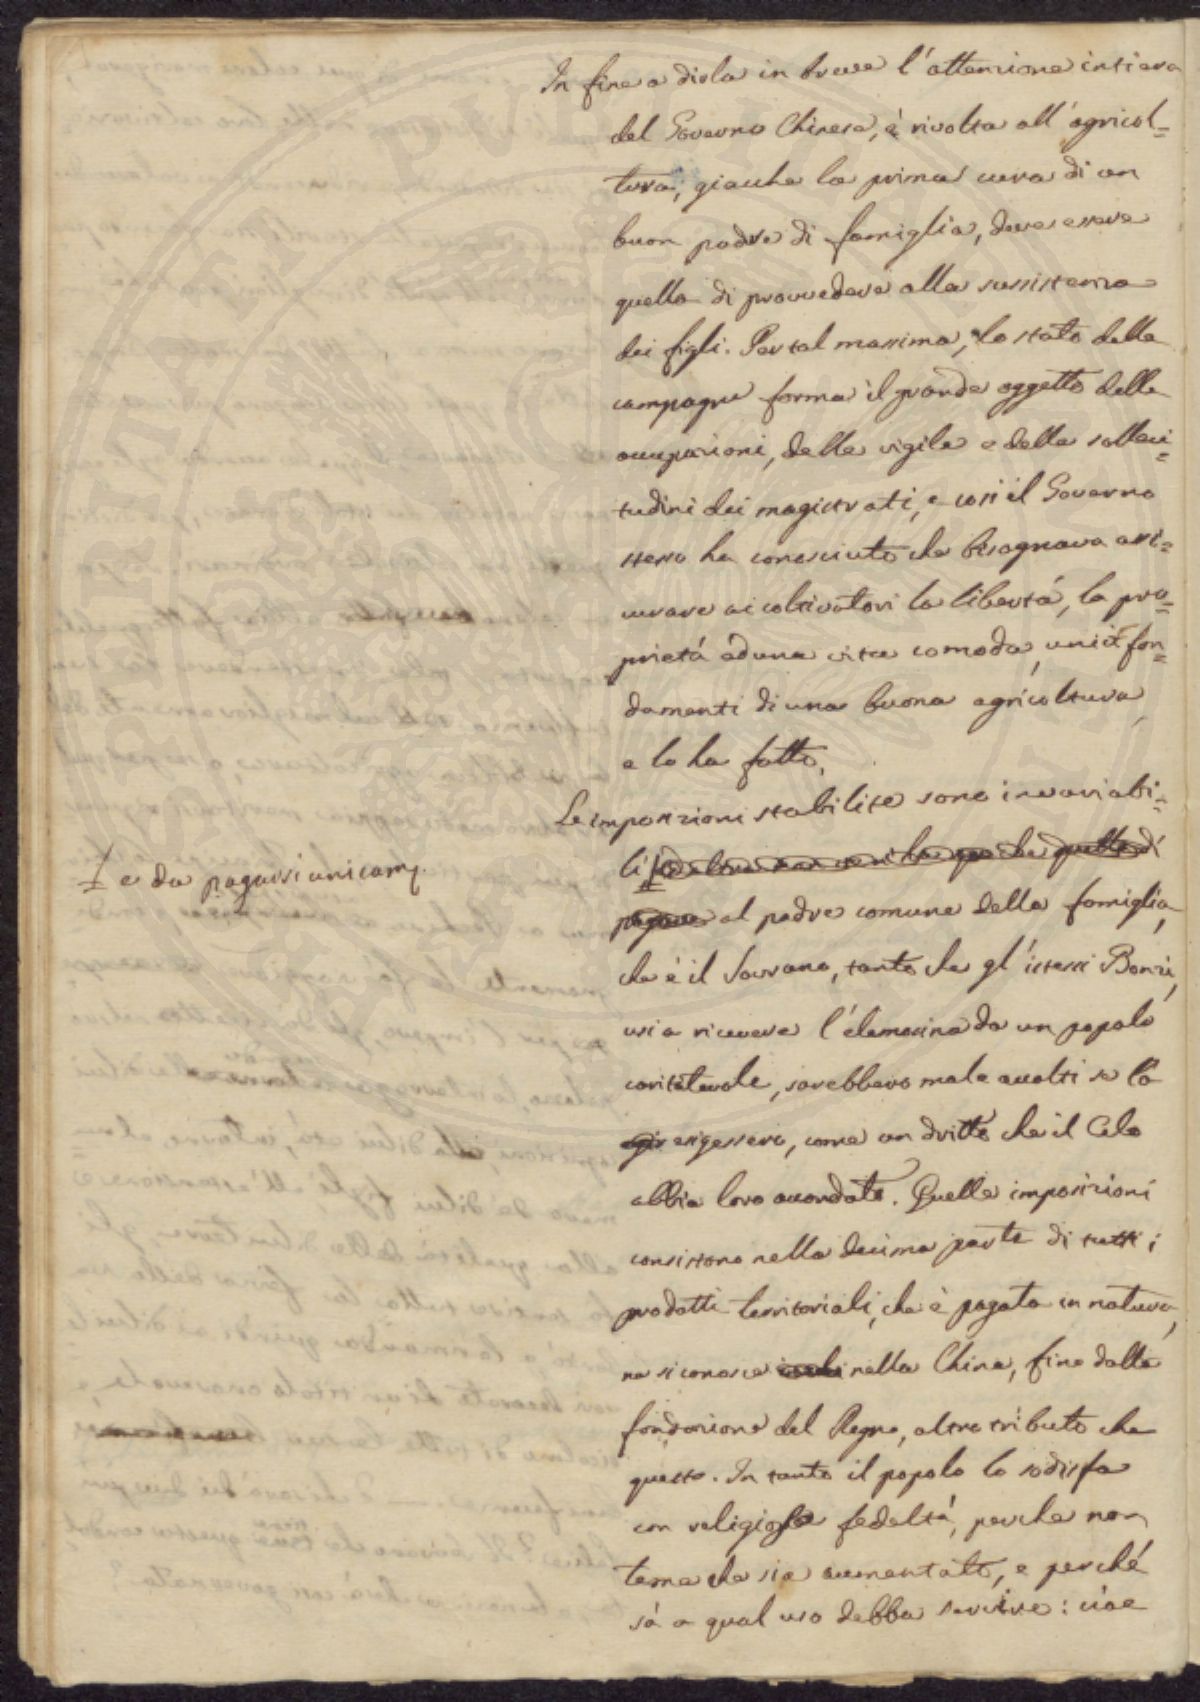 In fine a dirla in breve l'attenzione intiera
del Governo Chinese, è rivolta all'agricol=
tura, giacche la prima cura di un
buon padre di famiglia, deve essere
quella di provvedere alla sussistenza
dei figli. Per tal massima, lo stato delle
campagne forma il grande oggetto delle
occupazioni, delle vigile e delle solleci=
tudini dei magistrati, e così il Governo
stesso ha conosciuto che bisognava assi=
curare ai coltivatori la libertá, la pro=
prietá ed una vita comoda, unici fon=
damenti di una buona agricoltura,
e lo ha fatto.
Le imposizioni stabilite sono invariabi=
li di
e da pagarsi unicam.
pagare al padre comune della famiglia,
che è il Sovrano, tanto che gl'istessi Bonzi,
usi a ricevere l'elemosina da un popolo
caritatevole, sarebbero male accolti se la
esigessero, come un dritto che il Celo
abbia loro accordato. Quelle imposizioni
consistono nella decima parte di tutti i
prodotti territoriali, che è pagata in natura,
ne si conosce nella China, fino dalla
fondazione del Regno, altro tributo che
questo. In tanto il popolo lo sodisfa
con religiosa fedeltá, perche non
teme che sia aumentato, e perché
sá a qual uso debba servire: cioe